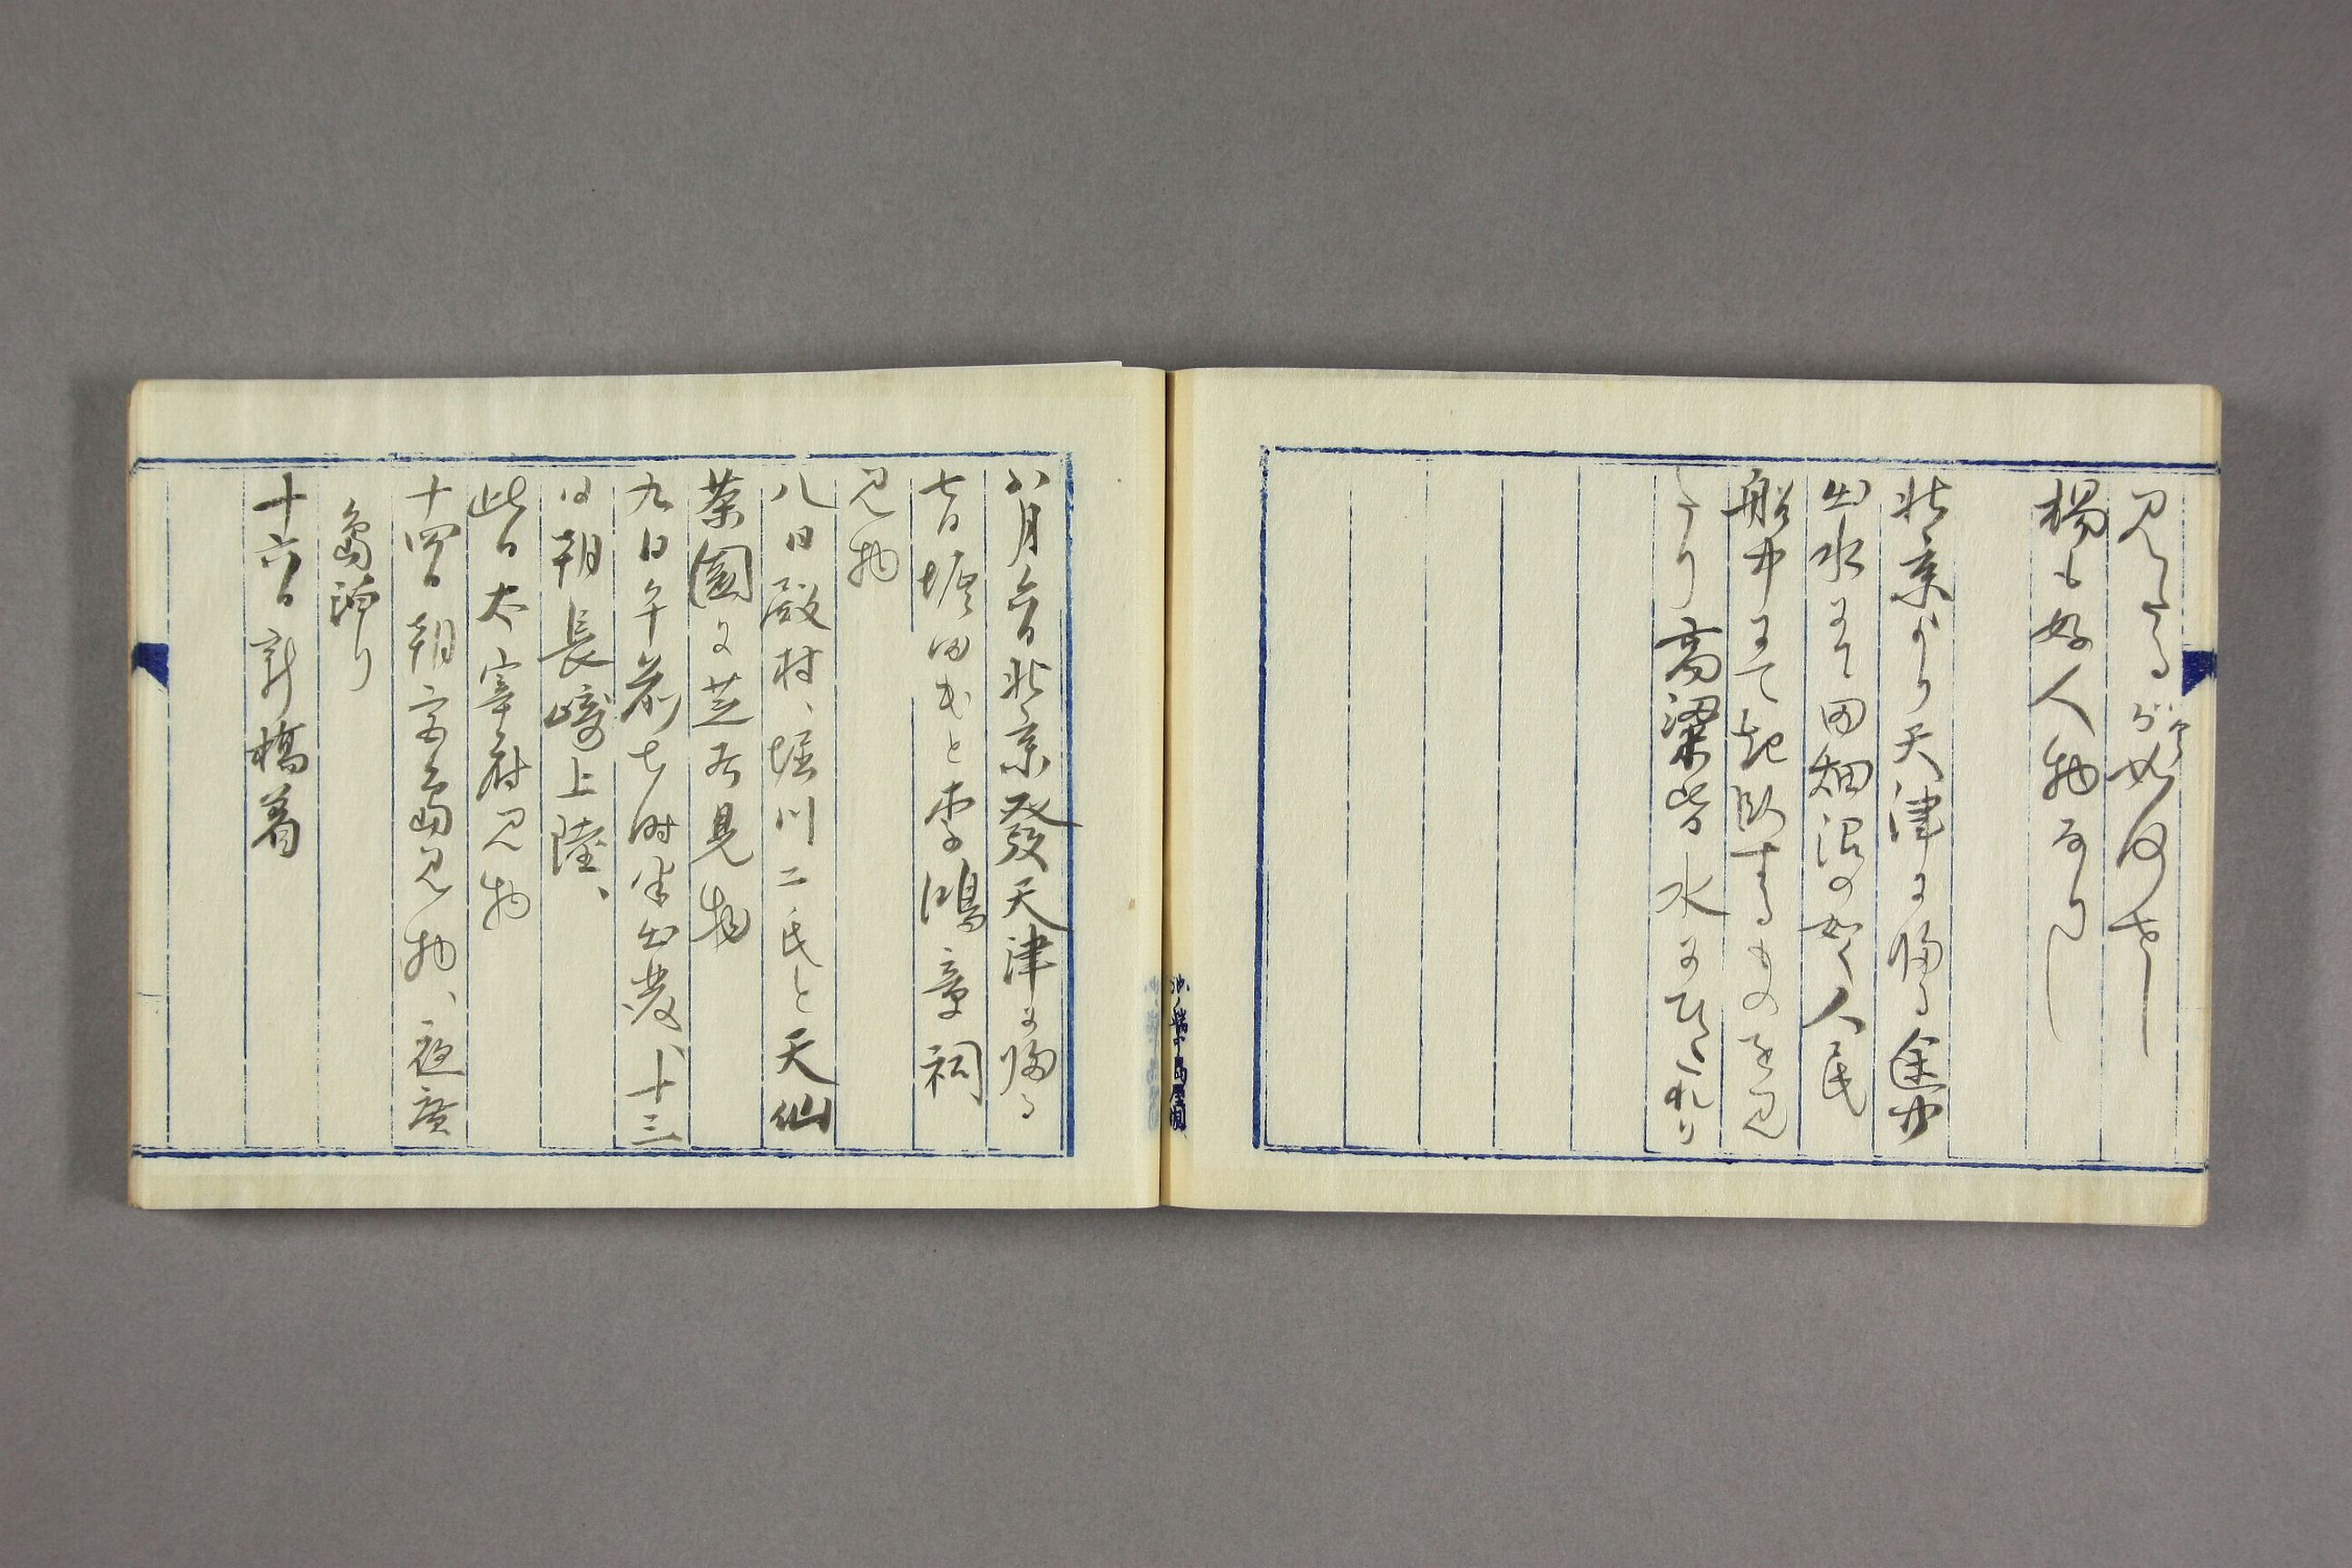 見たるが如何せし
楊も好人物なりし
北京より天津に帰る途中
出水にて田畑沼の如く人民
船中にて起臥するものを見
たり高梁皆水にひたれり
池ノ端中島屋製
八月六日北京發天津に帰る
七日堀田氏と李鴻章祠
見物
八日殿村、堀川二氏と天仙
茶園に芝居見物
九日午前七時半出發、十三
日朝長崎上陸、
此日太宰府見物
十四日朝宮島見物、夜廣
島泊り
十六日新橋着